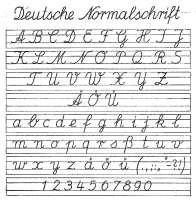 Deutsche Normalschrift
A B C D E F G H I J
K L M N O P Q R S
T U V W X Y Z
Ä Ö Ü
a b c d e f g h i j k l
m n o p q r s ß t u v
w x y z ä ö ü (.,:; "-?!)
1 2 3 4 5 6 7 8 9 0